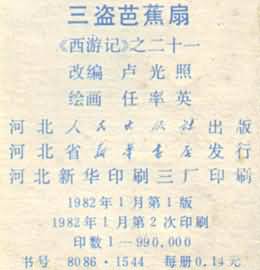 三盗芭蕉扇
《西游记》之二十一
改编 卢光照
绘画 任率英
河北人民出版社出版
河北省新华书店发行
河北新华印刷三厂印刷
1982年1月第1版
1982年1月第2次印刷
印数1—990,000
书号 8086·1544 每册0.14元